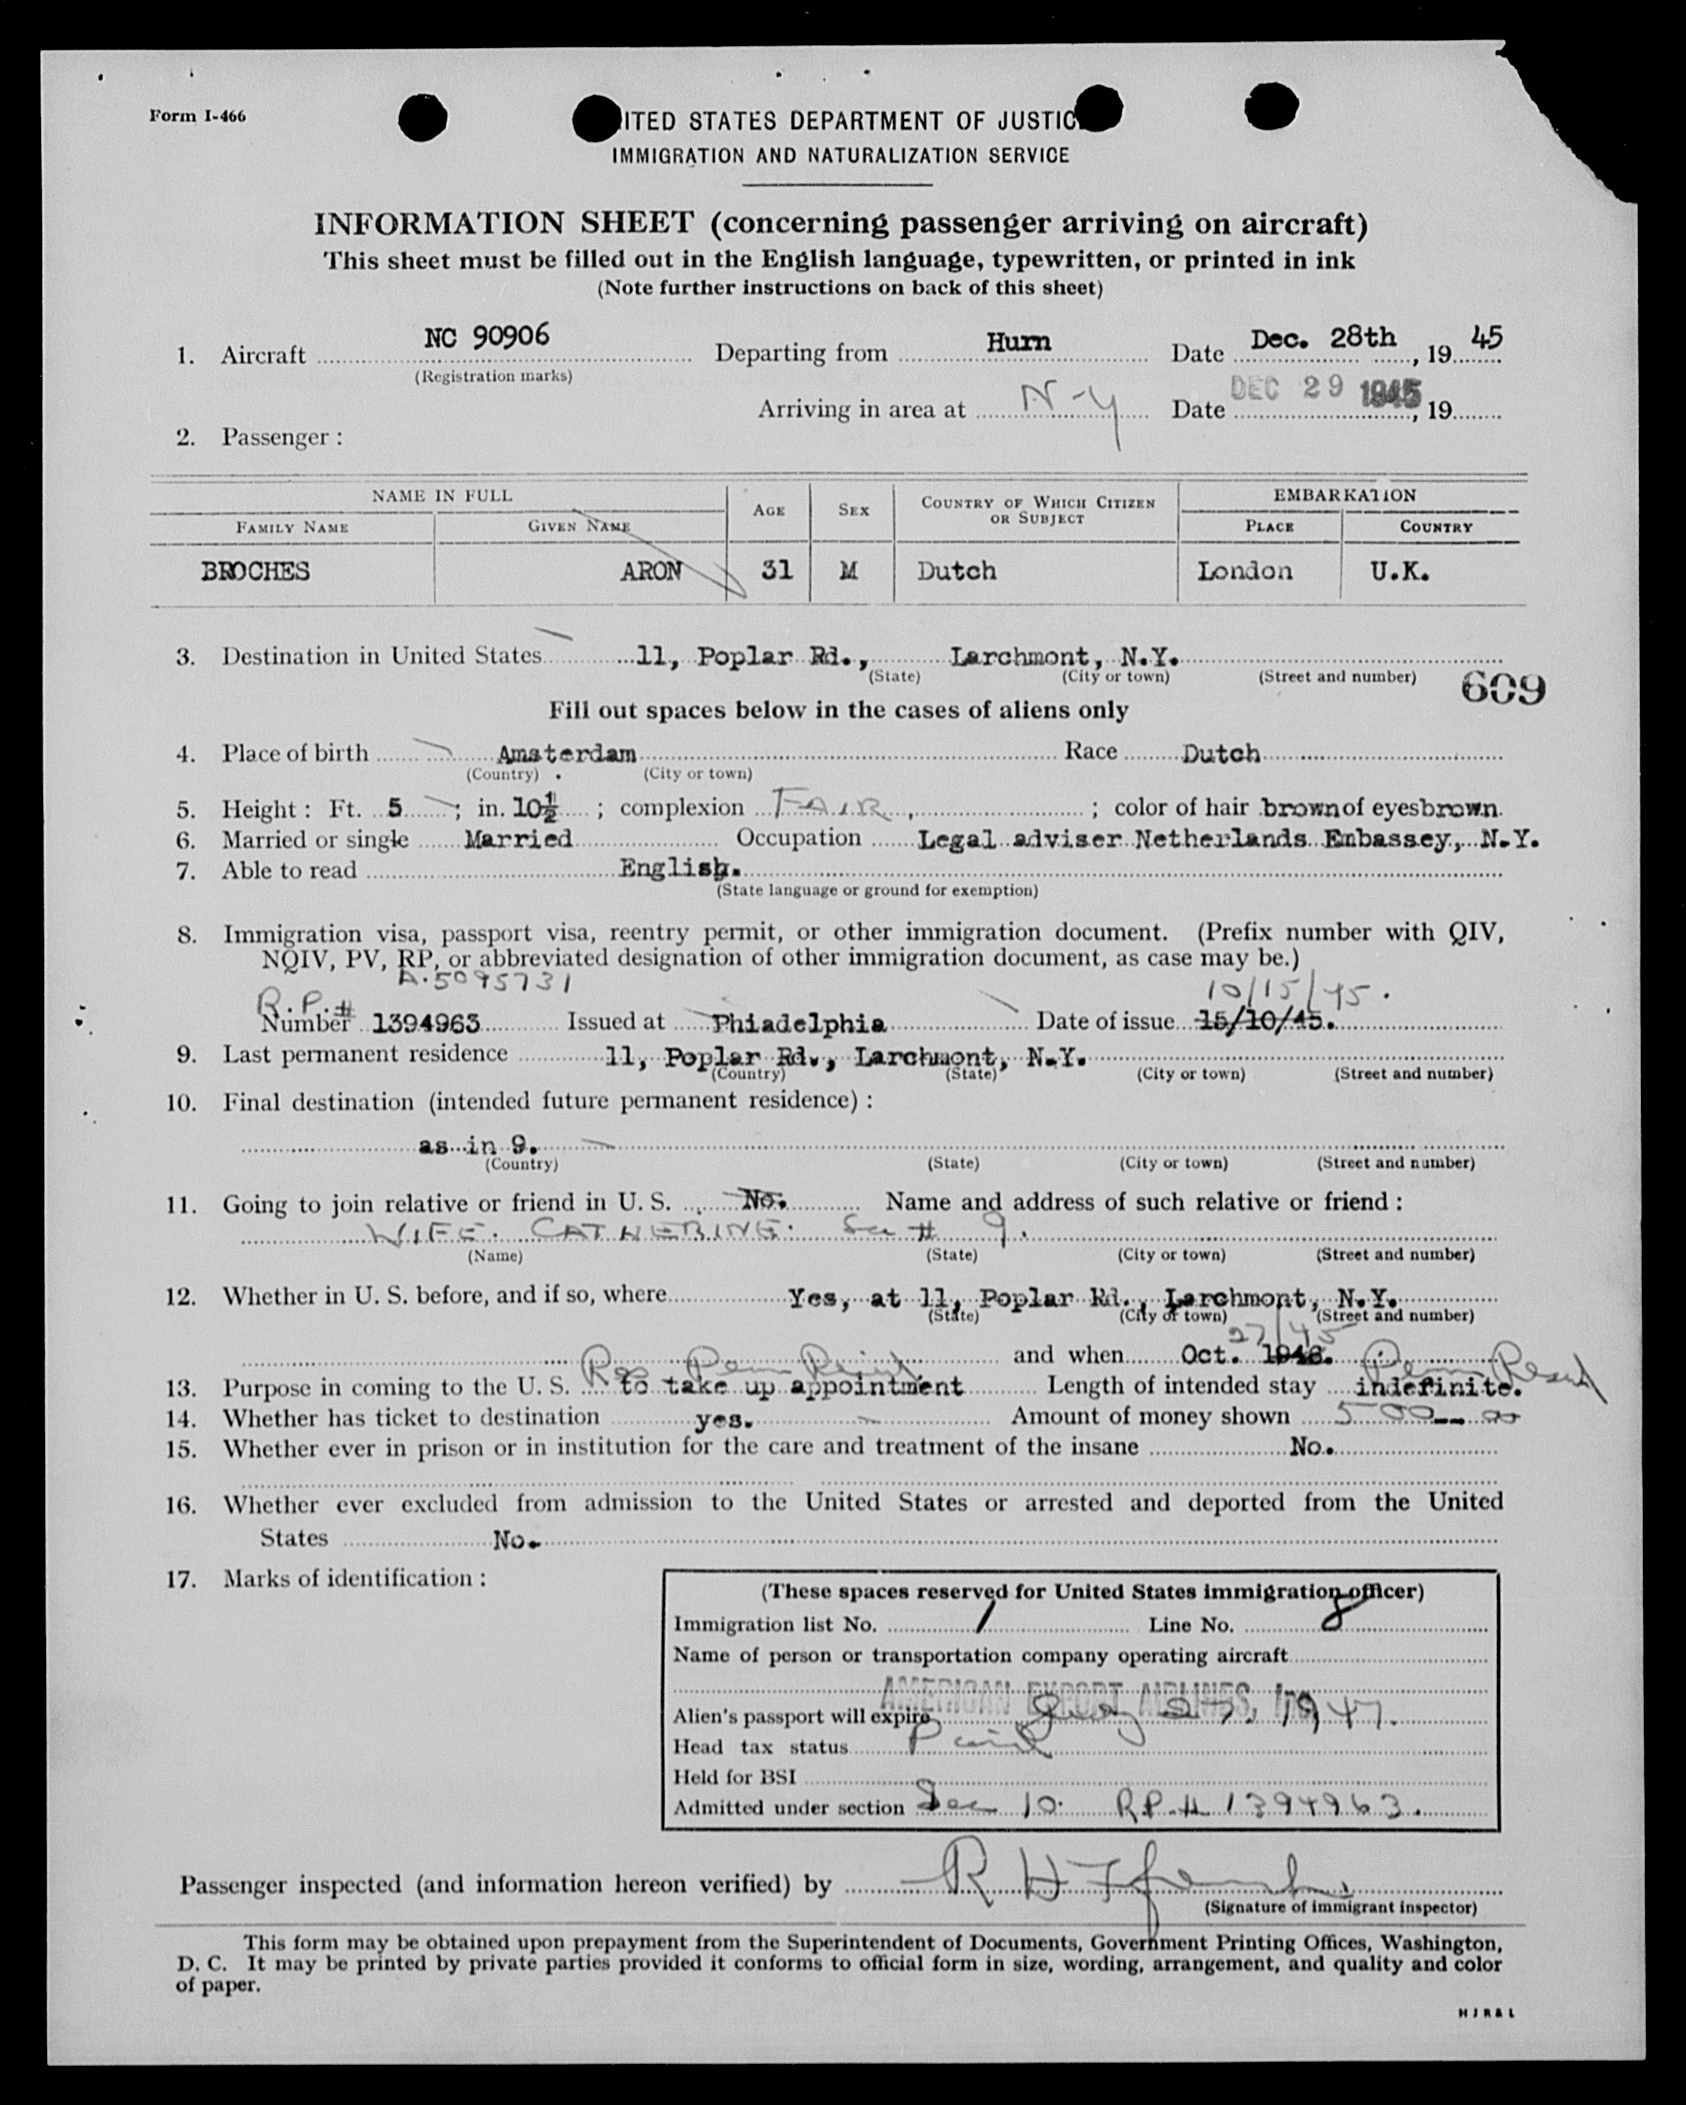 Form I-466
ITED STATES DEPARTMENT OF JUSTIC
IMMIGRATION AND NATURALIZATION SERVICE
INFORMATION SHEET (concerning passenger arriving on aircraft)
This sheet must be filled out in the English language, typewritten, or printed in ink
(Note further instructions on back of this sheet)
1. Aircraft NC 90906 Departing from Hurn Date Dec. 28th, 19 45
(Registration marks)
Arriving in area at N-Y Date DEC 29 1945, 19
2. Passenger:
NAME IN FULL AGE SEX COUNTRY OF WHICH CITIZEN OR SUBJECT EMBARKATION
FAMILY NAME GIVEN NAME PLACE COUNTRY
BROCHES ARON 31 M Dutch London U.K.
3. Destination in United States 11, Poplar Rd., Larchmont, N.Y.
(State) (City or town) (Street and number)
609
Fill out spaces below in the cases of aliens only
4. Place of birth Amsterdam Race Dutch
(Country) (City or town)
5. Height: Ft. 5; in. 10½; complexion FAIR; color of hair brown of eyes brown.
6. Married or single Married Occupation Legal adviser Netherlands Embassey, N.Y.
7. Able to read English.
(State language or ground for exemption)
8. Immigration visa, passport visa, reentry permit, or other immigration document. (Prefix number with QIV,
NQIV, PV, RP, or abbreviated designation of other immigration document, as case may be.)
A-5095731
R.P.# 10/15/45.
Number 1394963 Issued at Phiadelphia Date of issue 15/10/45.
9. Last permanent residence 11, Poplar Rd., Larchmont, N.Y.
(Country) (State) (City or town) (Street and number)
10. Final destination (intended future permanent residence):
as in 9.
(Country) (State) (City or town) (Street and number)
11. Going to join relative or friend in U. S. No. Name and address of such relative or friend:
WIFE. CATHERINE. See # 9.
(Name) (State) (City or town) (Street and number)
12. Whether in U. S. before, and if so, where Yes, at 11, Poplar Rd., Larchmont, N.Y.
(State) (City or town) (Street and number)
27/45
and when Oct. 1946.
Res Perm Resident Perm Resid
13. Purpose in coming to the U. S. to take up appointment Length of intended stay indefinite.
14. Whether has ticket to destination yes. Amount of money shown 500-- 00
15. Whether ever in prison or in institution for the care and treatment of the insane No.
16. Whether ever excluded from admission to the United States or arrested and deported from the United
States No.
17. Marks of identification:
(These spaces reserved for United States immigration officer)
Immigration list No. 1 Line No. 8
Name of person or transportation company operating aircraft
AMERICAN EXPORT AIRLINES, INC.
Alien's passport will expire July 27, 1947.
Head tax status Paid
Held for BSI
Admitted under section Sec 10. R.P.# 1394963.
Passenger inspected (and information hereon verified) by
(Signature of immigrant inspector)
This form may be obtained upon prepayment from the Superintendent of Documents, Government Printing Offices, Washington,
D. C. It may be printed by private parties provided it conforms to official form in size, wording, arrangement, and quality and color
of paper.
HJR&L